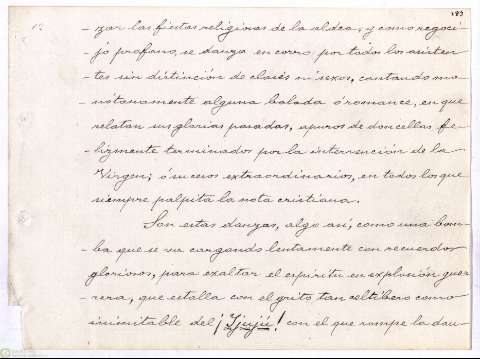 183
zar las fiestas religiosas de la aldea; y como regoci-
jo profano, se danza en corro por todos los asisten-
tes sin distinción de clases ni sexos, cantando mo-
nótonamente alguna balada ó romance, en que
relatan sus glorias pasadas, apuros de doncellas fe-
lizmente terminados por la intervención de la
Virgen; ó sucesos extraordinarios, en todos los que
siempre palpita la nota cristiana.
Son estas danzas, algo así, como una bom-
ba que se va cargando lentamente con recuerdos
gloriosos, para exaltar el espíritu en explosión gue-
rrera, que estalla con el grito tan celtíbero como
inimitable del ¡Ijujú! con el que rompe la dan-